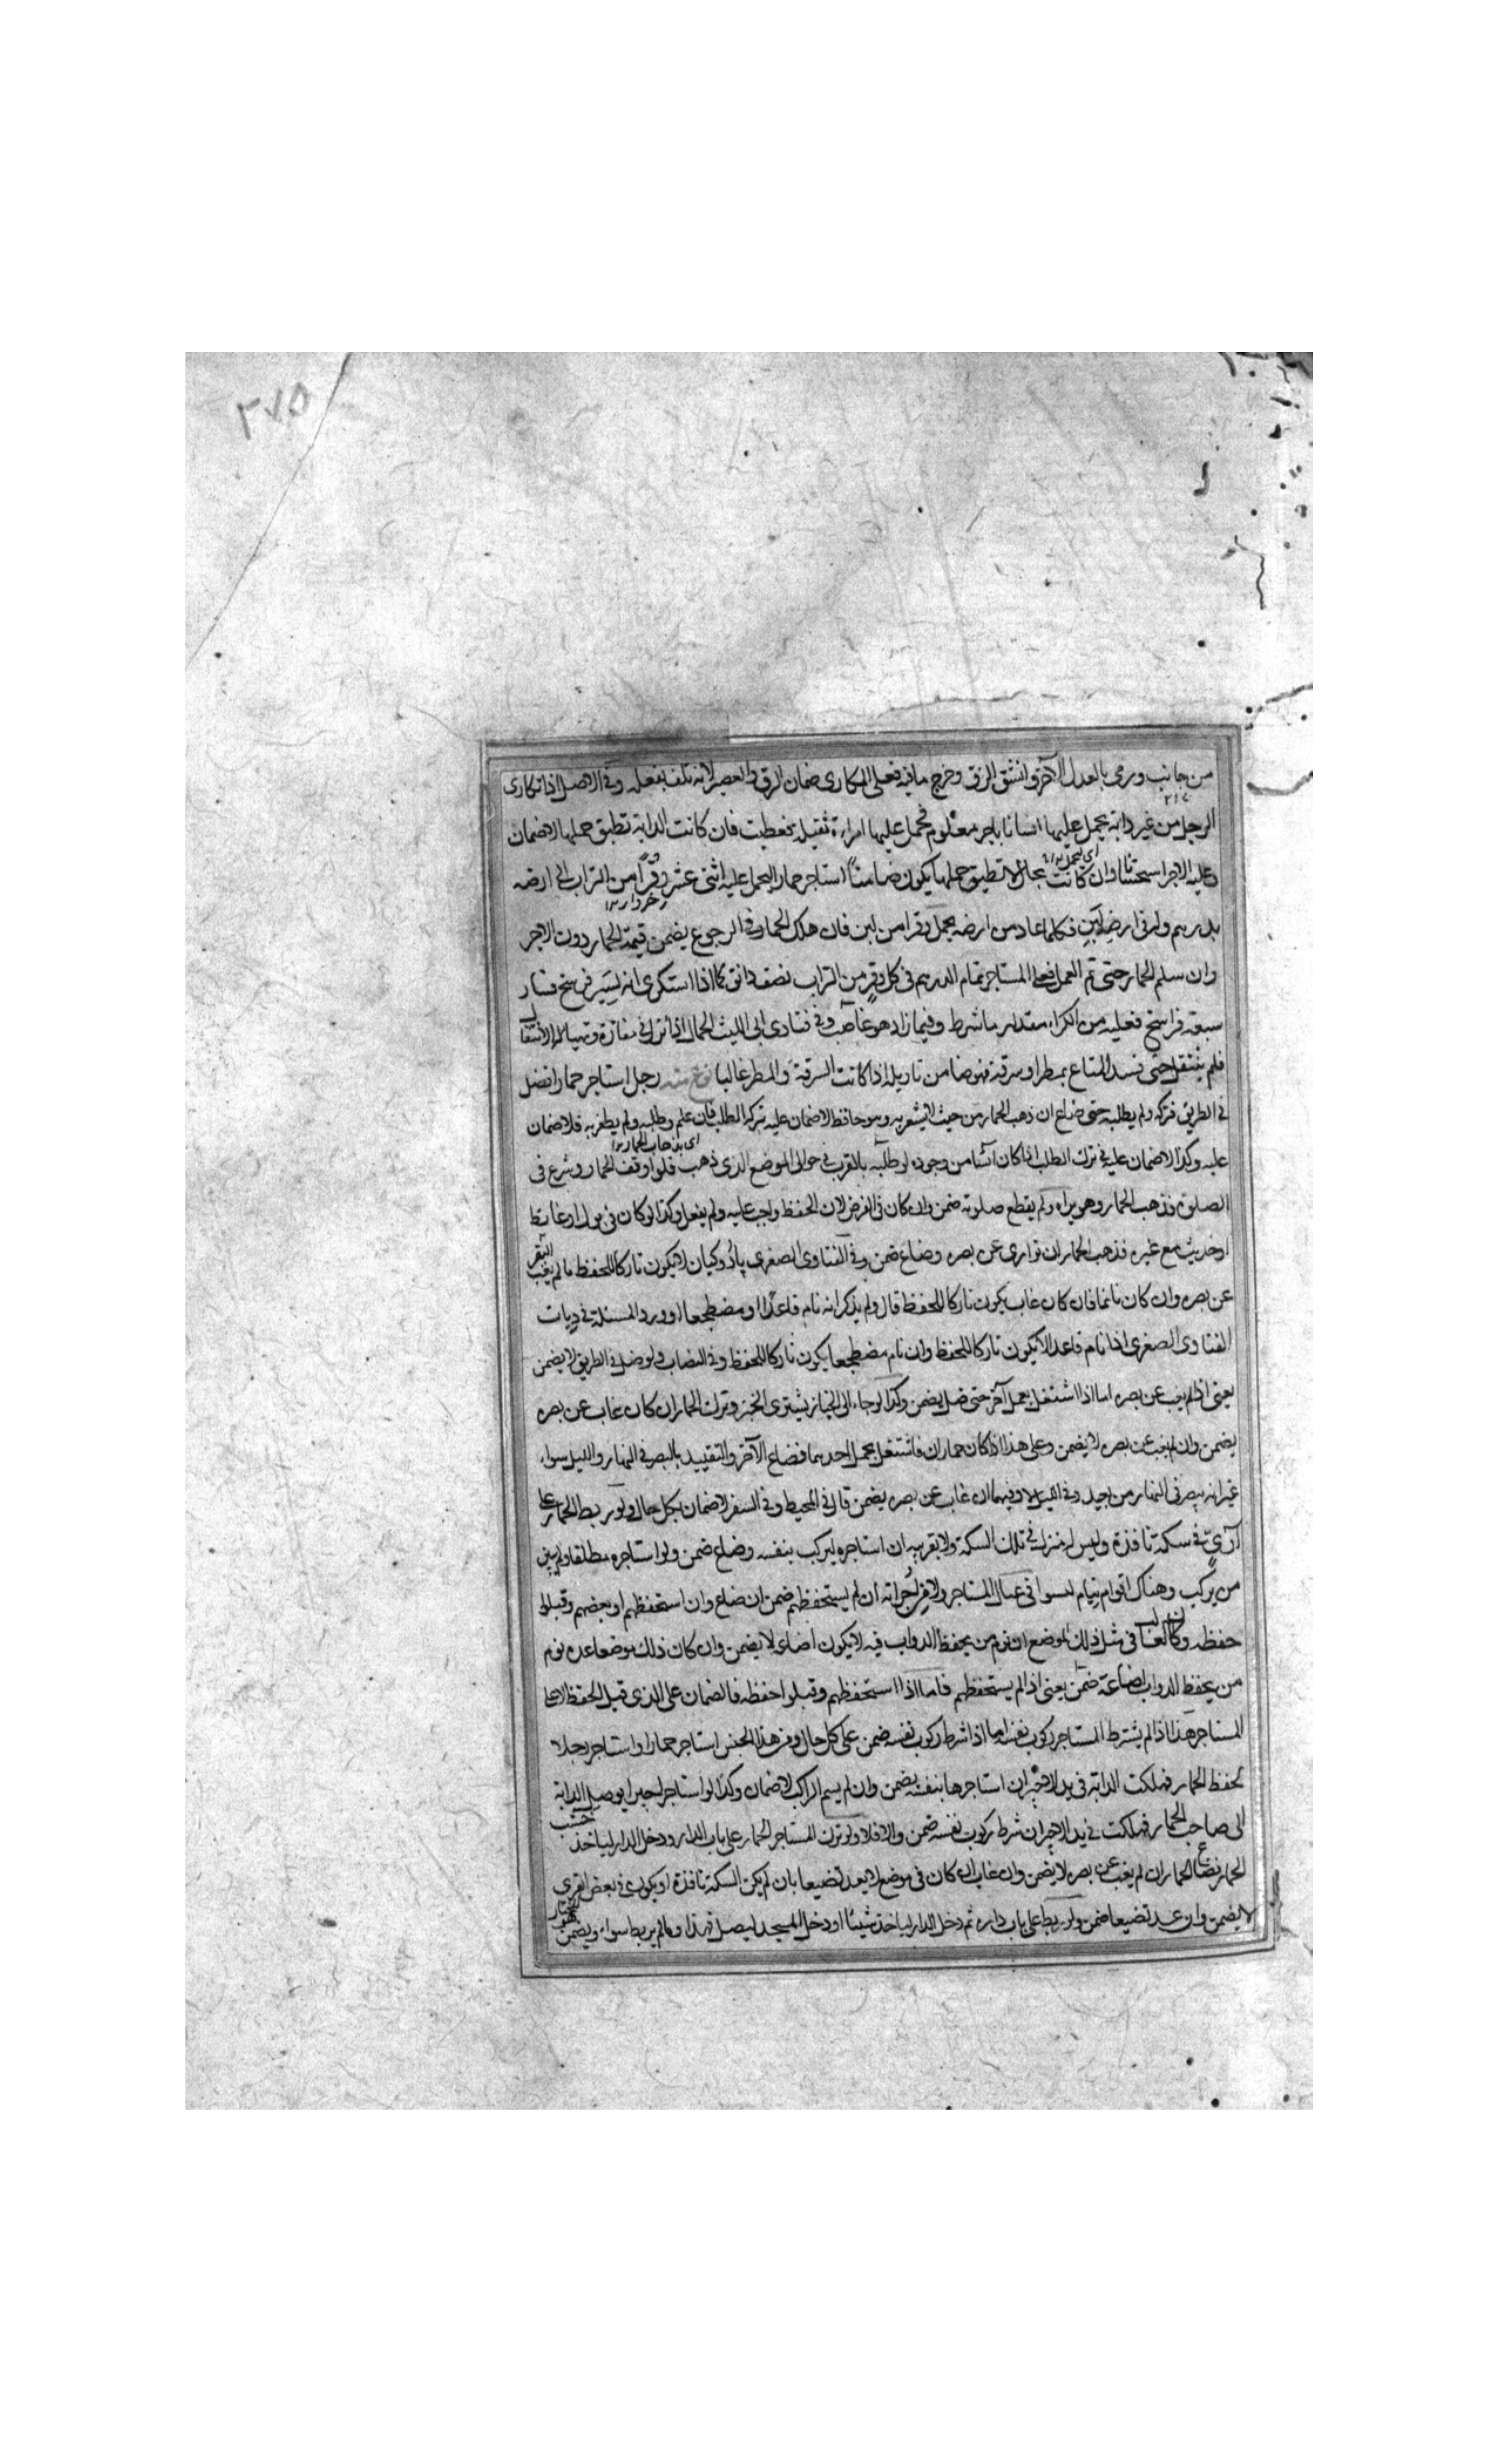 ٢٧٥
من جانب ورمى بالعدل الآخر وانشق الزق وخرج ما فيه فعلى المكارى ضمان الزق والعصير لانه تلف بفعله وفى الاصل اذا تكارى
الرجل من غير دابة يحمل عليها انسانا باجر معلوم فحمل عليها امراة ثقيلة فعطبت فان كانت الدابة تطيق حملها لا ضمان
وعليه الاجر استحسانا وان كانت بحال لا تطيق حملها يكون ضامناً استاجر حمارا ليحمل عليه اثنى عشر وقراً من التراب الى ارضه
بدرهم وله فى ارضه لبن فكلما عاد من ارضه يحمل وقرا من لبن فان هلك الحمار فى الرجوع يضمن قيمة الحمار دون الاجر
وان سلم الحمار حتى تم العمل فعلى المستاجر تمام الدرهم فى كل وقر من التراب نصف دانق كما اذا استكرى دابة ليسير فرسخ فسار
سبعة فراسخ فعليه من الكراء مقدار ما شرط وفيما زاد هو غاصب وفى فتاوى ابى الليث الحمال اذا نزل فى مفازة وتهيأ له الانتقال
فلم ينتقل حتى فسد المتاع بمطر او سرقة فهو ضامن تاويله اذا كانت السرقة والمطر غالبا نوع منه رجل استاجر حمارا فضل
فى الطريق فتركه ولم يطلبه حتى ضاع ان ذهب الحمار من حيث لا يشعر به وهو حافظ لا ضمان عليه بتركه الطلب فان علم وطلبه ولم يظفر به فلا ضمان
عليه وكذا لا ضمان عليه فى ترك الطلب اذا كان آئسا من وجوده لو طلبه بالقرب فى حوالى الموضع الذى ذهب فلو اوقف الحمار وشرع فى
الصلوة فذهب الحمار وهو يراه ولم يقطع صلوته ضمن وان كان فى الفرض لان الحفظ واجب عليه ولم يفعل وكذا لو كان فى بول او غائط
او حديث مع غيره فذهب الحمار ان توارى عن بصره وضاع ضمن وفى الفتاوى الصغرى پادوكيان لا يكون تاركا للحفظ ما لم يغب البقر
عن بصره وان كان نائما فان كان غاب يكون تاركا للحفظ قال ولم يذكر انه نام قاعدا او مضطجعا اورد المسئلة فى ديات
الفتاوى الصغرى اذا نام قاعدا لا يكون تاركا للحفظ وان نام مضطجعا يكون تاركا للحفظ وفى النصاب ولو ضل فى الطريق لا يضمن
يعنى اذا لم يغب عن بصره اما اذا اشتغل بعمل آخر حتى ضل يضمن وكذا لو جاء الى الخباز يشترى الخبز وترك الحمار ان كان غاب عن بصره
يضمن وان لم يغب عن بصره لا يضمن وعلى هذا اذا كان حماران فاشتغل بحمل احدهما فضاع الآخر والتقييد بالبصر فى النهار والليل سواء
غير انه يبصر فى النهار من بعيد وفى الليل لا وفيهما ان غاب عن بصره يضمن قال فى المحيط وفى السفر لا ضمان بكل حال ولو ربط الحمار على
آرى فى سكة نافذة وليس له منزل فى تلك السكة ولا بقربه ان استاجره ليركب بنفسه وضاع ضمن ولو استاجره مطلقا ولم يبين
من يركب وهناك اقوام نيام ليسوا فى عيال المستاجر ولا من اجرائه ان لم يستحفظهم ضمن ان ضاع وان استحفظهم او بعضهم وقبلوا
حفظه وكان الغالب فى مثل ذلك الموضع ان نوم من يحفظ الدواب فيه لا يكون اضاعة لا يضمن وان كان ذلك موضعا عد نوم
من يحفظ الدواب اضاعة ضمن يعنى اذا لم يستحفظهم فاما اذا استحفظهم وقبلوا حفظه فالضمان على الذى قبل الحفظ لا على
المستاجر هذا اذا لم يشترط المستاجر ركوب نفسه اما اذا شرط ركوب نفسه ضمن على كل حال ومن هذا الجنس استاجر حمارا واستاجر رجلا
لحفظ الحمار فهلكت الدابة فى يد الاجير ان استاجرها بنفسه يضمن وان لم يسم الراكب لا ضمان وكذا لو استاجر اجيرا يوصل الدابة
الى صاحب الحمار فهلكت فى يد الاجير ان شرط ركوب نفسه ضمن والا فلا ولو ترك المستاجر الحمار على باب الدار ودخل الدار لياخذ خشب
الحمار فضاع الحمار ان لم يغب عن بصره لا يضمن وان غاب ان كان فى موضع لا يعد تضييعا بان لم يكن السكة نافذة او يكون فى بعض القرى
لا يضمن وان عد تضييعا ضمن ولو ربط على باب داره ثم دخل الدار لياخذ شيئا او دخل المسجد ليصلى فهذا وما لم يربط سواء ويضمن